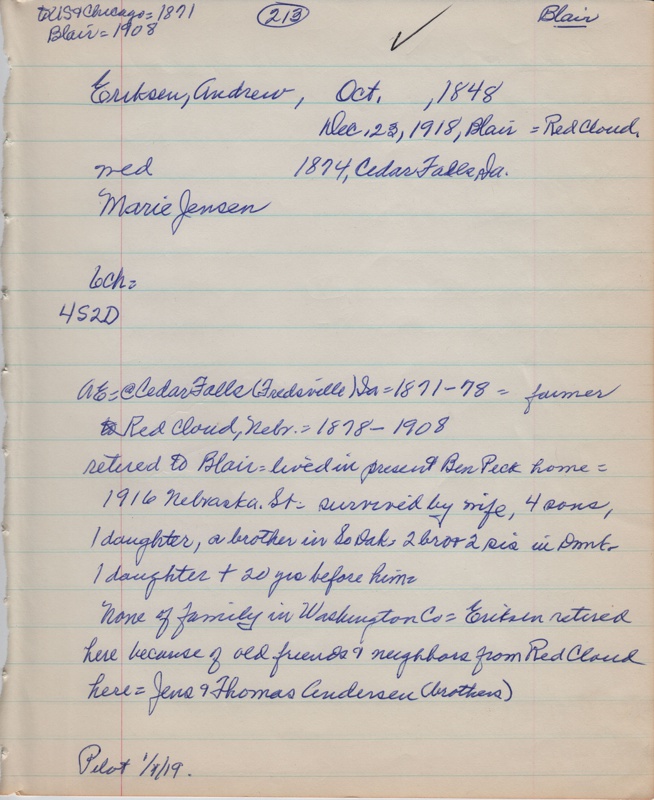 to US & Chicago = 1871
213
Blair
Blair = 1908
Eriksen, Andrew, Oct. , 1848
Dec. 23, 1918, Blair = Red Cloud.
med 1874, Cedar Falls, Ia.
Marie Jensen
6ch =
4S2D
AE = @ Cedar Falls (Fredsville) Ia = 1871-78 = farmer
Red Cloud, Nebr. = 1878 - 1908
retired to Blair = lived in present Ben Peck home =
1916 Nebraska. St = survived by wife, 4 sons,
1 daughter, a brother in So Dak. 2 bro & 2 sis in Dmk.
1 daughter + 20 yrs before him =
None of family in Washington Co = Eriksen retired
here because of old friends & neighbors from Red Cloud
here = Jens & Thomas Andersen (brothers)
Pilot 1/1/19.